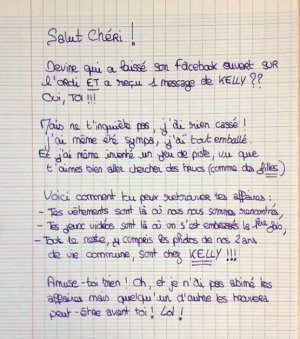 Salut Chéri !
Devine qui a laissé son Facebook ouvert sur
l'ordi ET a reçu 1 message de KELLY ??
Oui, TOI !!!
Mais ne t'inquiète pas, j'ai rien cassé !
j'ai même été sympa, j'ai tout emballé.
Et j'ai même inventé un jeu de piste, vu que
t'aimes bien aller chercher des trucs (comme des filles)
Voici comment tu peux retrouver tes affaires :
- Tes vêtements sont là où nous nous sommes rencontrés,
- Tes jeux vidéos sont là où on s'est embrassé la 1ère fois,
- Tout le reste, y compris les photos de nos 2 ans
de vie commune, sont chez KELLY !!!
Amuse-toi bien ! Oh, et je n'ai pas abîmé les
affaires mais quelqu'un d'autre les trouvera
peut-être avant toi ! Lol !